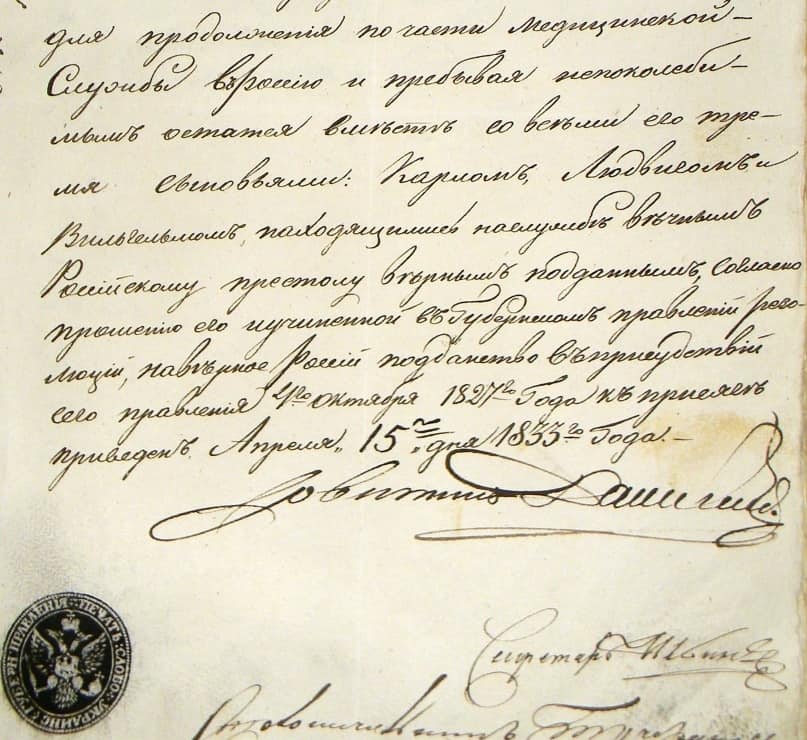 для продолженія по части медицинской
Службы въ Россію и пребывая непоколеби-
мымъ остатся вместѣ со всѣми его тре-
мя сыновьями: Карломъ, Людвигомъ и
Вильгельмомъ, находящимися наслужбѣ вѣчнымъ
Россійскому престолу вѣрнымъ подданнымъ, согласно
прошенію его иучиненной въ Губернскомъ правленіи резо-
люціи, навѣрное Россіи подданство въ присудствіи
сего правленія 4го октября 1827го Года къ присягѣ
приведенъ. Апреля „15го„ дня 1833го Года. —
Совѣтникъ
Секретарь
ПЕЧАТЬ СЛОБО: УКРАИНС: ГУБЕРН: ПРАВЛЕНІЯ